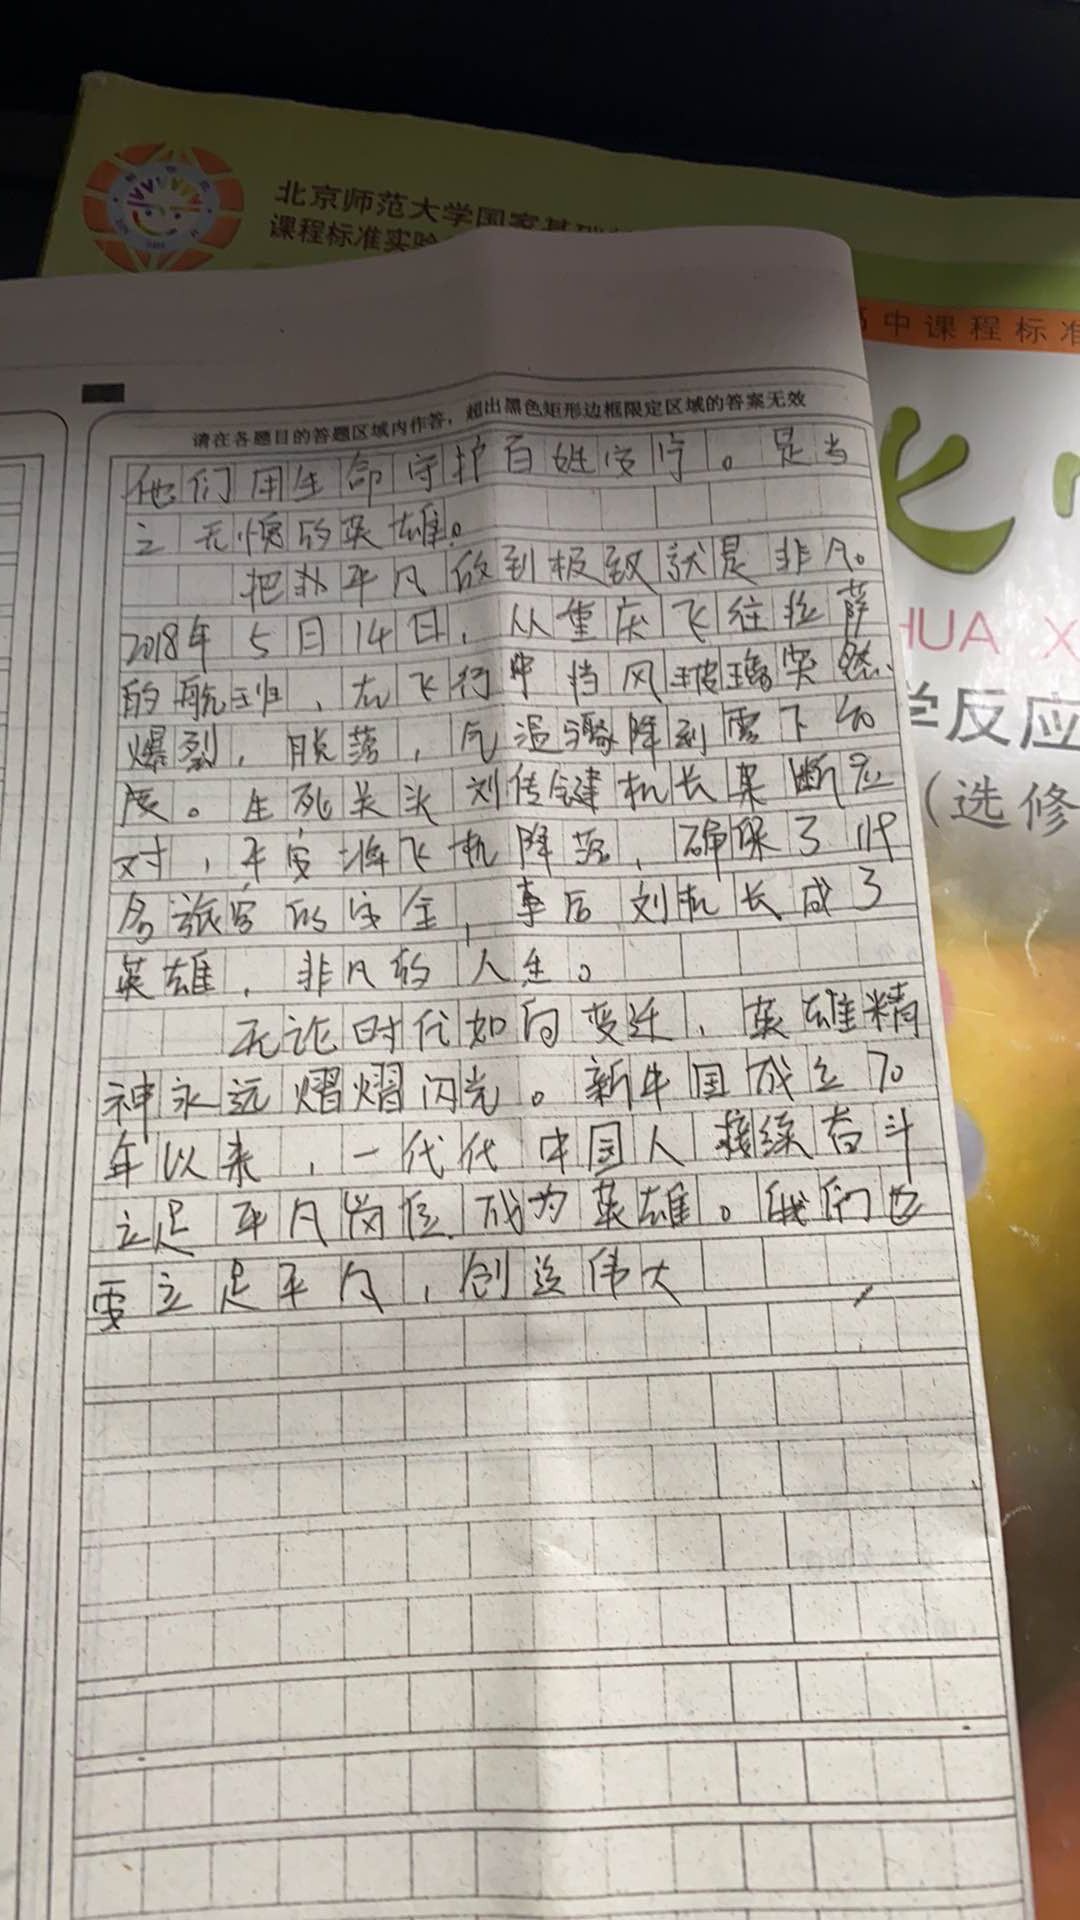 北京师范大学国家基础
课程标准实验
高中课程标准
化
HUA X
学反应
(选修
请在各题目的答题区域内作答，超出黑色矩形边框限定区域的答案无效
他们用生命守护百姓安宁。是当
之无愧的英雄。
把平凡做到极致就是非凡。
2018年5月14日，从重庆飞往拉萨
的航班，在飞行中挡风玻璃突然
爆裂，脱落，气温骤降到零下40
度。生死关头刘传健机长果断应
对，平安将飞机降落，确保了119
名旅客的安全，事后刘机长成了
英雄，非凡的人生。
无论时代如何变迁，英雄精
神永远熠熠闪光。新中国成立70
年以来，一代代中国人接续奋斗
立足平凡岗位成为英雄。我们也
要立足平凡，创造伟大